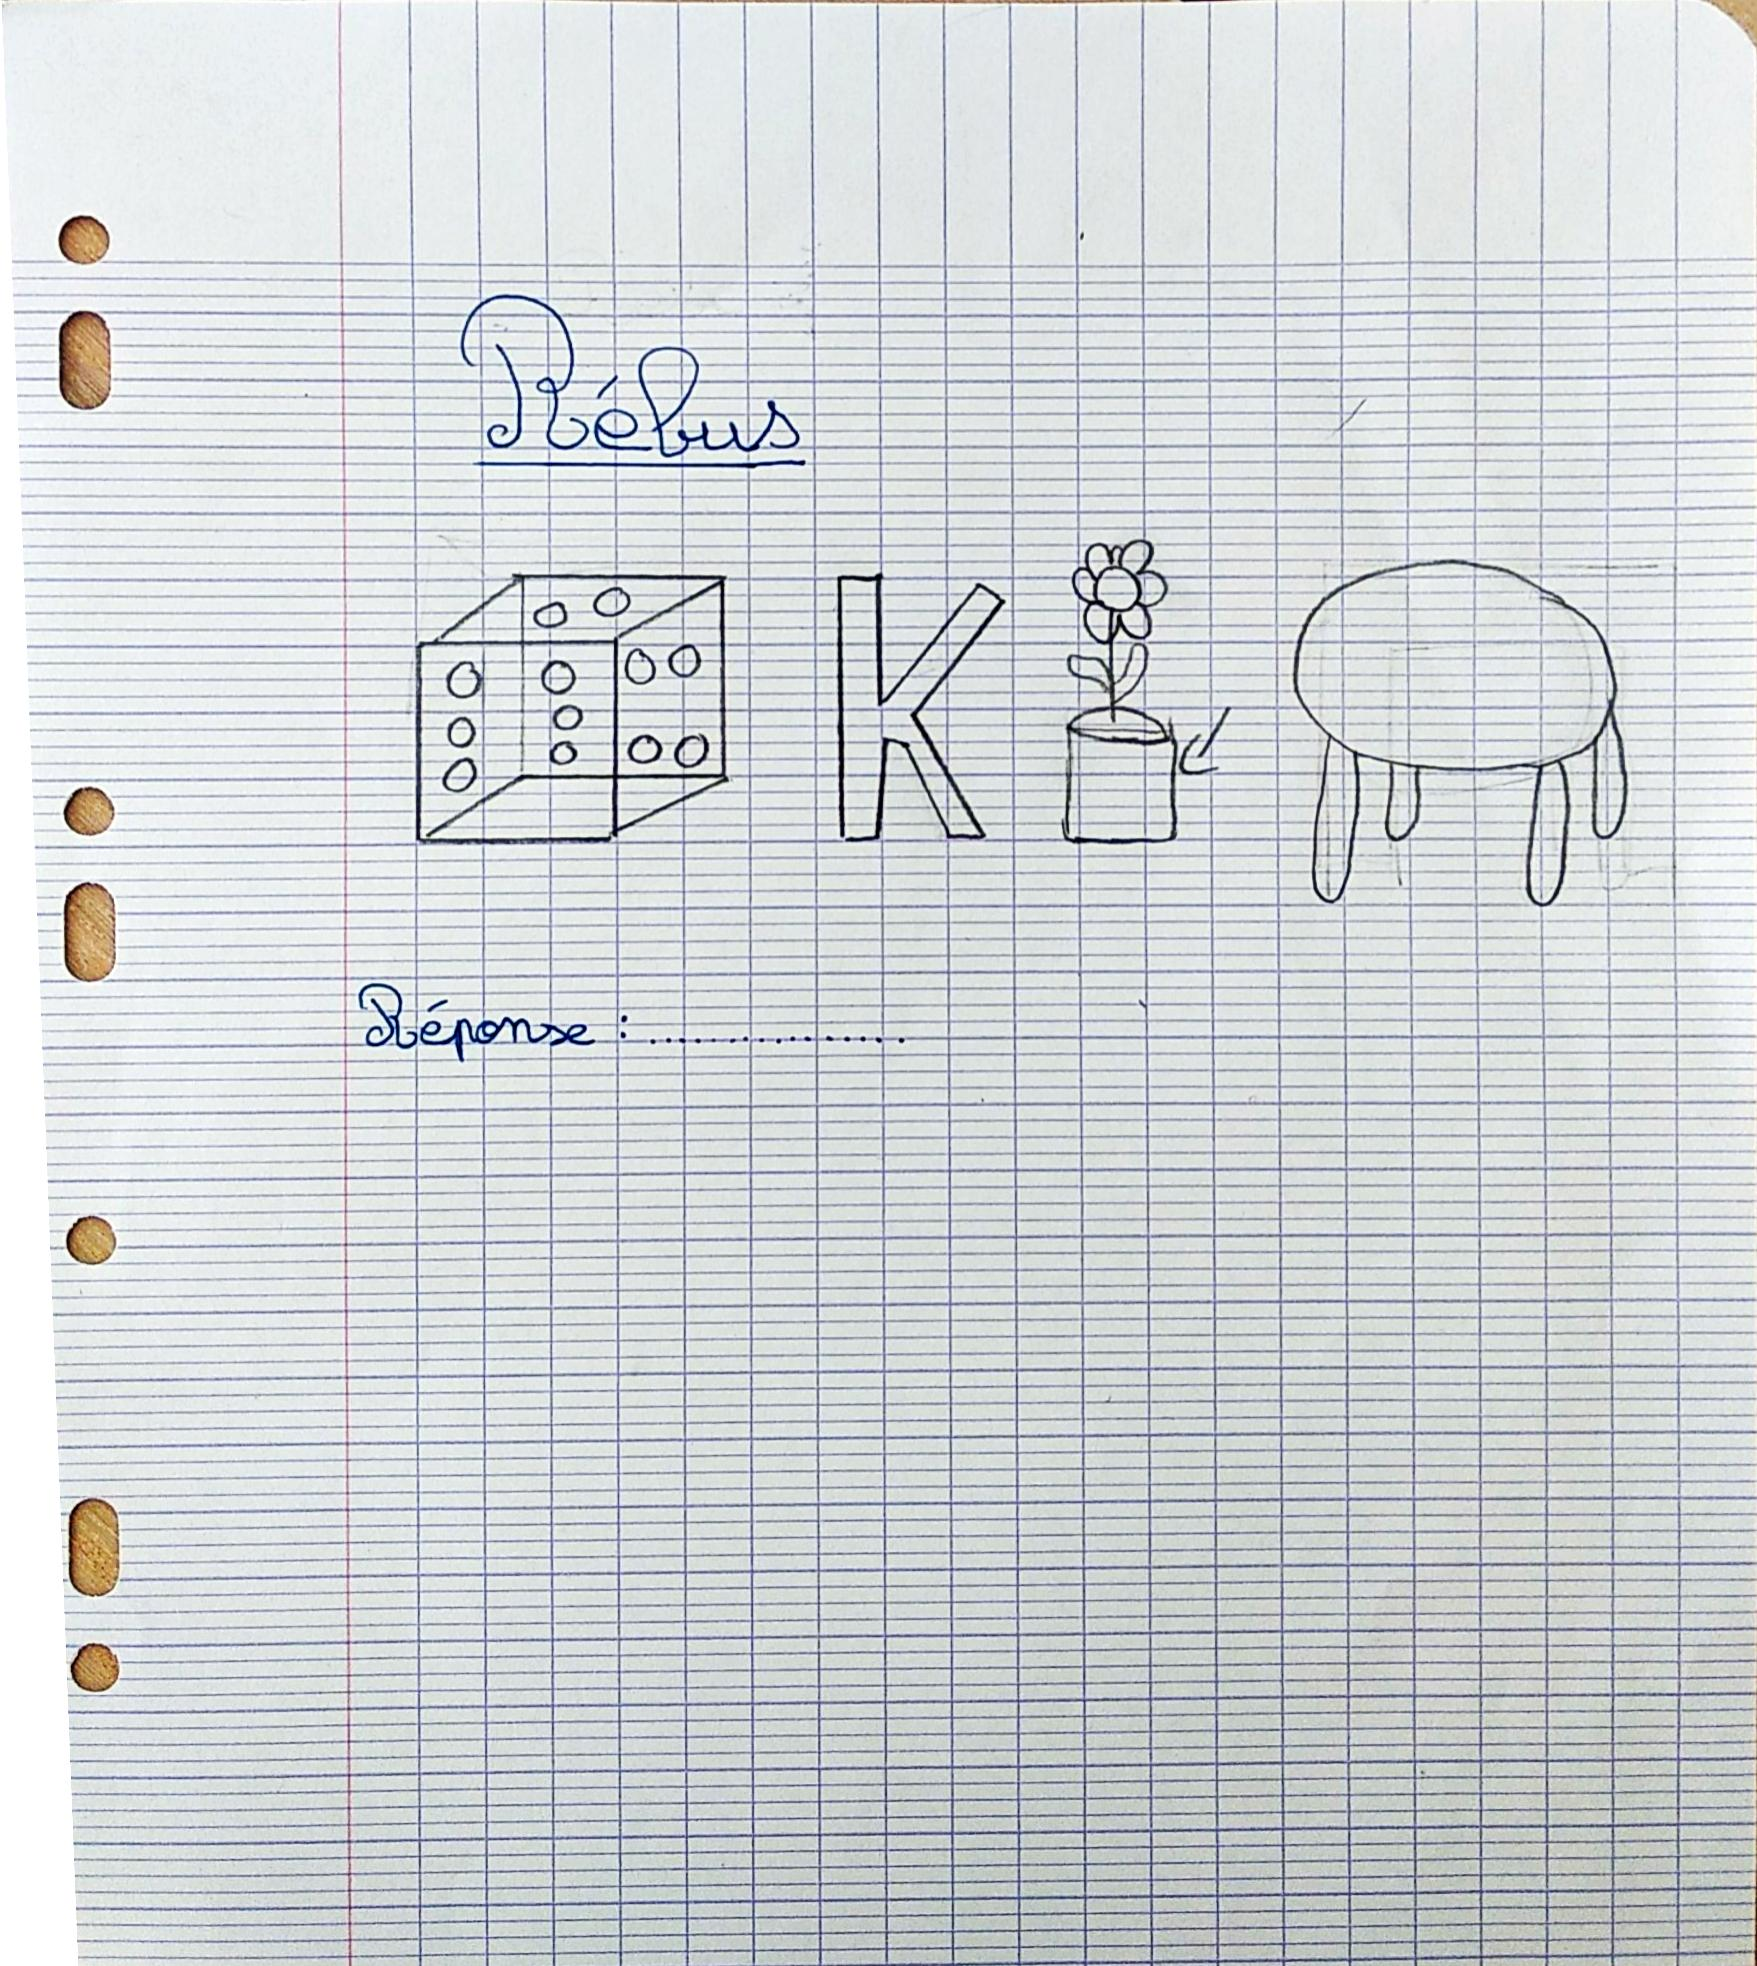 Rébus
K
Réponse : ................